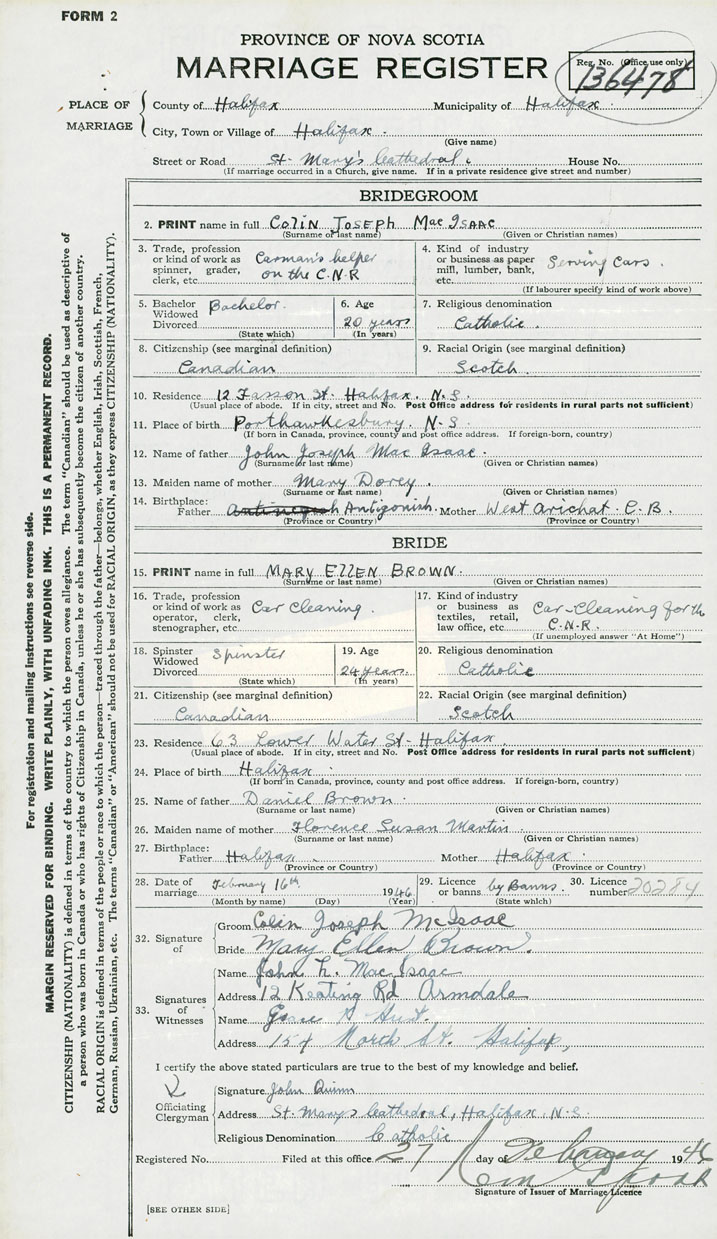 FORM 2
PROVINCE OF NOVA SCOTIA
MARRIAGE REGISTER
Reg. No. (Office use only)
136478
PLACE OF MARRIAGE
County of Halifax Municipality of Halifax
City, Town or Village of Halifax.
(Give name)
Street or Road St. Mary's Cathedral. House No.
(If marriage occurred in a Church, give name. If in a private residence give street and number)
BRIDEGROOM
2. PRINT name in full COLIN JOSEPH Mac ISAAC
(Surname or last name) (Given or Christian names)
3. Trade, profession or kind of work as spinner, grader, clerk, etc. Carman's helper on the C.N.R
4. Kind of industry or business as paper mill, lumber, bank, etc. Serving Cars.
(If labourer specify kind of work above)
5. Bachelor Widowed Divorced Bachelor.
(State which)
6. Age 20 years
(In years)
7. Religious denomination
Catholic.
8. Citizenship (see marginal definition)
Canadian
9. Racial Origin (see marginal definition)
Scotch
10. Residence 12 St. Halifax. N.S.
(Usual place of abode. If in city, street and No. Post Office address for residents in rural parts not sufficient)
11. Place of birth Porthawkesbury. N.S
(If born in Canada, province, county and post office address. If foreign-born, country)
12. Name of father John Joseph Mac Isaac.
(Surname or last name) (Given or Christian names)
13. Maiden name of mother Mary Dorey.
(Surname or last name) (Given or Christian names)
14. Birthplace: Father Antigonish. Mother West Arichat. C.B.
(Province or Country) (Province or Country)
BRIDE
15. PRINT name in full MARY ELLEN BROWN.
(Surname or last name) (Given or Christian names)
16. Trade, profession or kind of work as operator, clerk, stenographer, etc. Car Cleaning.
17. Kind of industry or business as textiles, retail, law office, etc. Car-Cleaning for the C.N.R.
(If unemployed answer "At Home")
18. Spinster Widowed Divorced Spinster
(State which)
19. Age 24 years.
(In years)
20. Religious denomination
Catholic
21. Citizenship (see marginal definition)
Canadian
22. Racial Origin (see marginal definition)
Scotch
23. Residence 63 Lower Water St- Halifax
(Usual place of abode. If in city, street and No. Post Office address for residents in rural parts not sufficient)
24. Place of birth Halifax.
(If born in Canada, province, county and post office address. If foreign-born, country)
25. Name of father Daniel Brown.
(Surname or last name) (Given or Christian names)
26. Maiden name of mother Florence Susan Martin.
(Surname or last name) (Given or Christian names)
27. Birthplace: Father Halifax. Mother Halifax.
(Province or Country) (Province or Country)
28. Date of marriage February 16th 1946
(Month by name) (Day) (Year)
29. Licence or banns by Banns.
(State which)
30. Licence number 20284
32. Signature of
Groom Colin Joseph McIsaac
Bride Mary Ellen Brown.
33. Signatures of Witnesses
Name John L. MacIsaac
Address 12 Keating Rd Armdale
Name A Hunt.
Address 154 North St. Halifax,
I certify the above stated particulars are true to the best of my knowledge and belief.
Officiating Clergyman
Signature John Quinn
Address St. Mary's Cathedral, Halifax, N.S.
Religious Denomination Catholic
Registered No. Filed at this office 27 day of February 1946
Signature of Issuer of Marriage Licence
[SEE OTHER SIDE]
For registration and mailing instructions see reverse side.
MARGIN RESERVED FOR BINDING. WRITE PLAINLY, WITH UNFADING INK. THIS IS A PERMANENT RECORD.
CITIZENSHIP (NATIONALITY) is defined in terms of the country to which the person owes allegiance. The term "Canadian" should be used as descriptive of
a person who was born in Canada or who has rights of Citizenship in Canada, unless he or she has subsequently become the citizen of another country.
RACIAL ORIGIN is defined in terms of the people or race to which the person—traced through the father—belongs, whether English, Irish, Scottish, French,
German, Russian, Ukrainian, etc. The terms "Canadian" or "American" should not be used for RACIAL ORIGIN, as they express CITIZENSHIP (NATIONALITY).